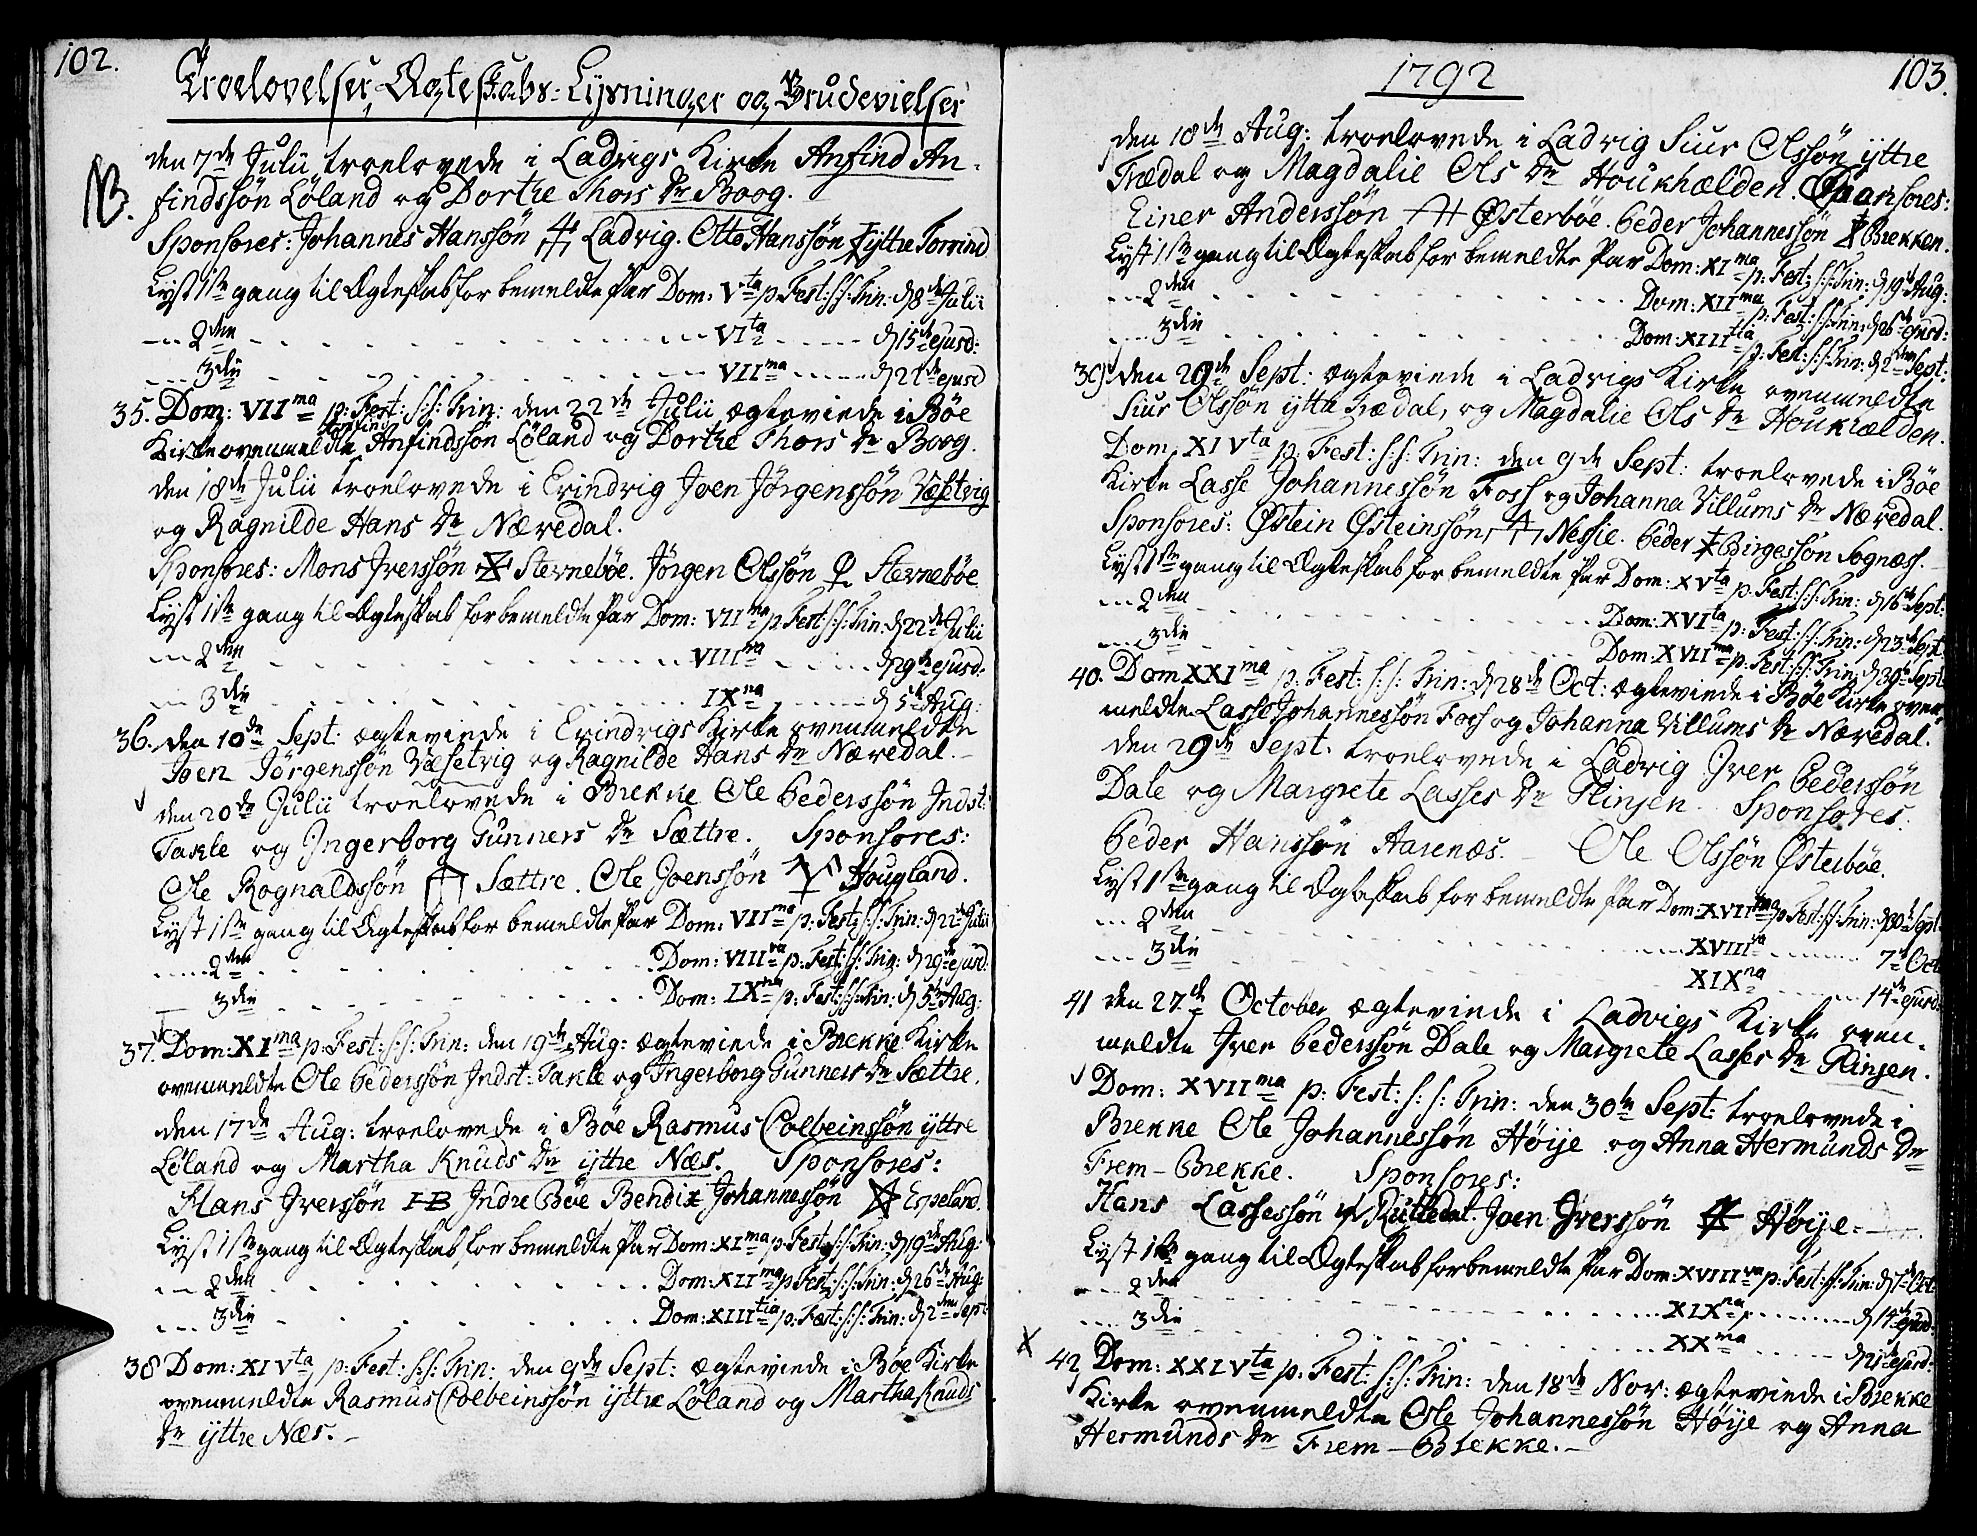 102.
Troelovelser, Ægteskabs-Lysninger og Brudevielser
den 7de Julii troelovede i Ladvigs Kirke Anfind An-
NB. findssøn Løland og Dorthe Thors Dr Boog.
Sponsores: Johannes Hanssøn Ladvig. Otto Hanssøn yttre Torvind
Lyst 1ste gang til Ægteskab for bemeldte Par Dom: Vta p: Fest: S:S: Trin: d 8de Julii
--- 2den --- VIta --- d 15de ejusd:
--- 3die --- VIIma --- d 21de ejusd
35. Dom: VIIma p: Fest: S:S: Trin: den 22de Julii ægteviede i Bøe
Kirke ovenmeldte Anfind Anfindssøn Løland og Dorthe Thors Dr Boog.
den 18de Julii troelovede i Evindvig Joen Jørgenssøn Væsetvig
og Ragnilde Hans Dr Næredal.
Sponsores: Mons Iverssøn Stevnebøe. Jørgen Olssøn Stevnebøe
Lyst 1ste gang til Ægteskab for bemeldte Par Dom: VIIma p: Fest: S:S: Trin: d 22de Julii
--- 2den --- VIIIva --- d 29de ejusd:
--- 3die --- IXna --- d 5te Aug:
36. den 10de Sept: ægteviede i Evindvigs Kirke ovenmeldte
Joen Jørgenssøn Væsetvig og Ragnilde Hans Dr Næredal.
den 20de Julii troelovede i Brekke Ole Pederssøn Indst:
Takle og Ingerborg Gunners Dr Sættre. Sponsores:
Ole Rognaldssøn Sættre. Ole Joenssøn Hougland.
Lyst 1ste gang til Ægteskab for bemeldte Par Dom: VIIma p: Fest: S:S: Trin: d 22de Julii
--- 2den --- Dom: VIIIva p: Fest: S:S: Trin: d 29de ejusd:
--- 3die --- Dom: IXna p: Fest: S:S: Trin: d 5te Aug:
37. Dom: XIma p: Fest: S:S: Trin: den 19de Aug: ægteviede i Brekke Kirke
ovenmeldte Ole Pederssøn Indst: Takle og Ingerborg Gunners Dr Sættre.
den 17de Aug: troelovede i Bøe Rasmus Colbeinssøn yttre
Løland og Martha Knuds Dr yttre Næs. Sponsores:
Hans Iverssøn Indre Bøe Bendix Johannessøn Espeland.
Lyst 1ste gang til Ægteskab for bemeldte Par Dom: XIma p: Fest: S:S: Trin: d 19de Aug:
--- 2den --- Dom: XIIma p: Fest: S:S: Trin: d 26de Aug:
--- 3die --- Dom: XIIItia p: Fest: S:S: Trin: d 2den Sept:
38 Dom: XIVta p: Fest: S:S: Trin: den 9de Sept: ægteviede i Bøe Kirke
ovenmeldte Rasmus Colbeinssøn yttre Løland og Martha Knuds
Dr yttre Næs.
1792
103.
den 18de Aug: troelovede i Ladvig Siur Olssøn yttre
Trædal og Magdalie Ols Dr Houkhælden. Sponsores:
Einer Anderssøn Østerbøe. Peder Johannessøn Brekken.
Lyst 1ste gang til Ægteskab for bemeldte Par Dom: XIma p: Fest: S:S: Trin: d 19de Aug:
--- 2den --- Dom: XIIma p: Fest: S:S: Trin: d 26de ejusd:
--- 3die --- Dom: XIIItia p: Fest: S:S: Trin: d 2den Sept:
39) den 29de Sept: ægteviede i Ladvigs Kirke ovenmeldte
Siur Olssøn yttre Trædal, og Magdalie Ols Dr Houkhælden.
Dom: XIVta p: Fest: S:S: Trin: den 9de Sept: troelovede i Bøe
Kirke Lasse Johannessøn Foss og Johanna Villums Dr Næredal.
Sponsores: Østein Østeinssøn Nessie. Peder Birgessøn Sognæs.
Lyst 1ste gang til Ægteskab for bemeldte Par Dom: XVta p: Fest: S:S: Trin: d 16de Sept:
--- 2den --- Dom: XVIta p: Fest: S:S: Trin: d 23de Sept
--- 3die --- Dom: XVIIma p: Fest: S:S: Trin: d 30te Sept
40. Dom XXIma p: Fest: S:S: Trin: d 28de Oct: ægteviede i Bøe Kirke oven-
meldte Lasse Johannessøn Foss og Johanna Villums Dr Næredal.
den 29de Sept. troelovede i Ladvig Iver Pederssøn
Dale og Margrete Lasses Dr Glinjen. Sponsores.
Peder Hanssøn Harenæs. Ole Olssøn Østerbøe.
Lyst 1ste gang til Ægteskab for bemeldte Par Dom: XVIIma p: Fest: S:S: Trin: d 30te Sept
--- 2den --- XVIIIva --- 7de Oct
--- 3die --- XIXna --- 14de ejusd:
41 den 27de October ægteviede i Ladvigs Kirke oven-
meldte Iver Pederssøn Dale og Margrete Lasses Dr Glinjen.
Dom: XVIIma p: Fest: S:S: Trin: den 30te Sept: troelovede i
Brekke Ole Johannessøn Høije og Anna Hermunds Dr
Frem-Brekke. Sponsores:
Hans Lassessøn Rutledal. Joen Iverssøn Høije.
Lyst 1ste gang til Ægteskab for bemeldte Par Dom: XVIIIva p: Fest: S:S: Trin: d 7de Oct:
--- 2den --- XIXna --- d 14de ejusd:
--- 3die --- XXma --- d 21de ejusd:
X 42 Dom: XXIVta p: Fest: S:S: Trin: den 18de Nov: ægteviede i Brekke
Kirke ovenmeldte Ole Johannessøn Høije og Anna
Hermunds Dr Frem-Brekke.